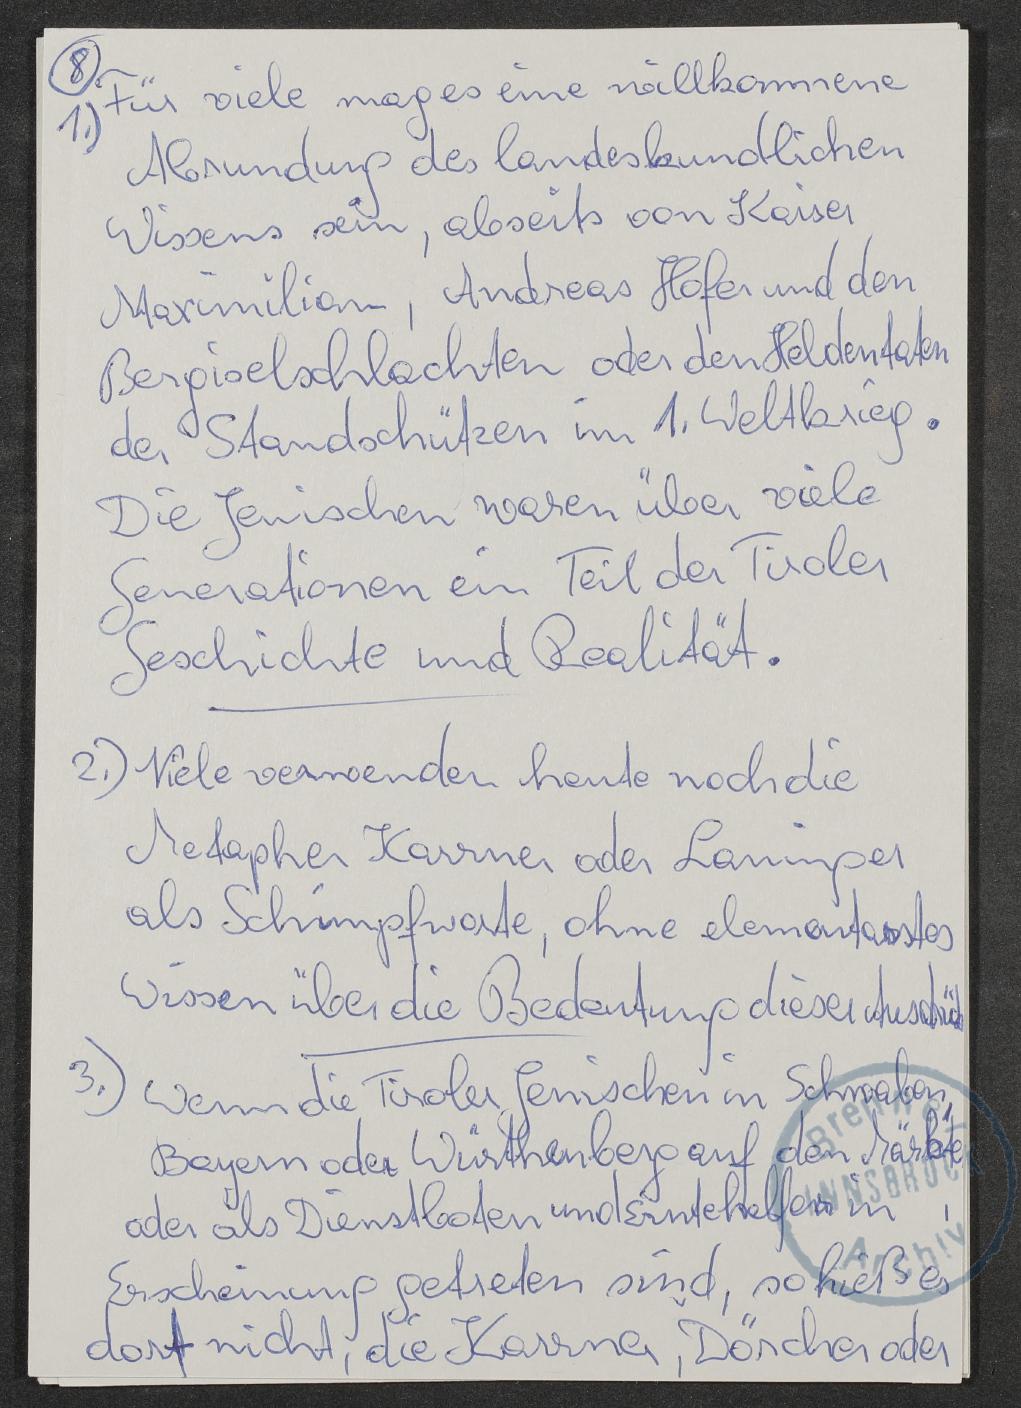 8
1.) Für viele mag es eine willkommene
Abrundung des landeskundlichen
Wissens sein, abseits von Kaiser
Maximilian, Andreas Hofer und den
Bergiselschlachten oder den Heldentaten
der Standschützen im 1. Weltkrieg.
Die Jenischen waren über viele
Generationen ein Teil der Tiroler
Geschichte und Realität.
2.) Viele verwenden heute noch die
Metapher Karrner oder Laninger
als Schimpfworte, ohne elementarstes
Wissen über die Bedeutung dieser
3.) Wenn die Tiroler Jenischen in Schwaben,
Bayern oder Württhenberg auf den Märkte
oder als Dienstboten und Erntehelfer in
Erscheinung getreten sind, so hieß es
dort nicht, die Karrner, Dörcher oder
Brenner
INNSBRUCK
Archiv